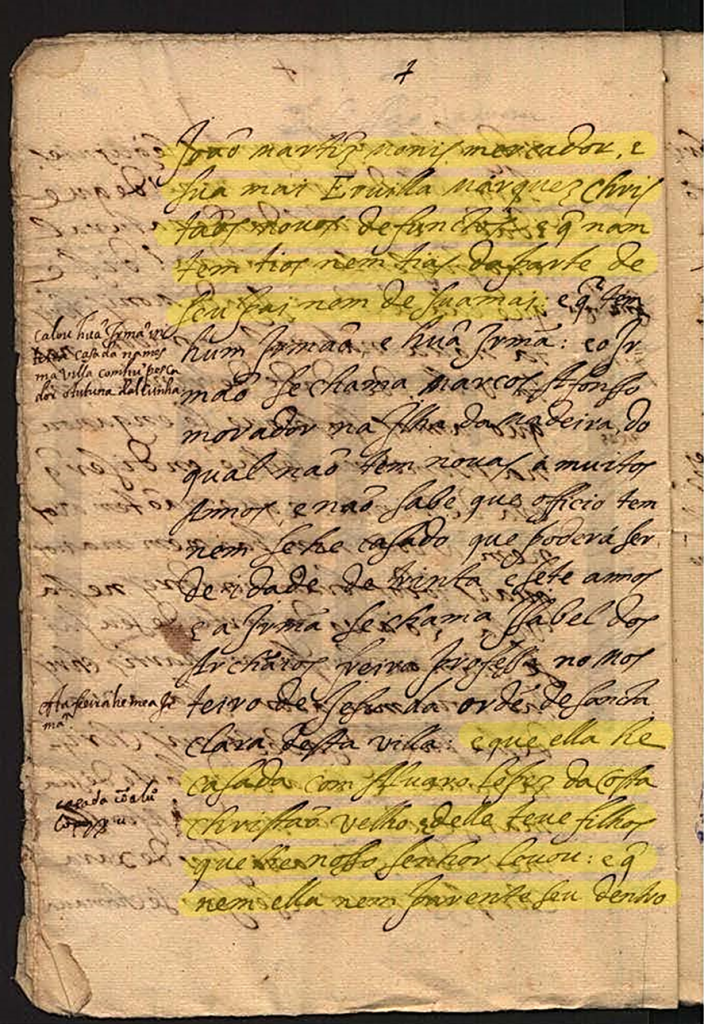 João martiz monis mercador, e
sua mai Ervilla Marquez chris
taõs novos defunctos, e q̃ nam
tem tios nem tias da parte de
seu pai nem de sua mai: e q̃ tem
hum Irmaõ e huã Irmã: e o Ir
maõ se chama Marcos Afonso
morador na Ilha da Madeira, do
qual naõ tem novas á muitos
Annos, e naõ sabe que officio tem
nem se he casado que poderá ser
de idade de trinta e sete annos
e a Irmã se chama Isabel dos
Archãios freira professa no Mos
teiro de Jesu da ordẽ de sancta
clara desta villa: e que ella he
casada com Alvaro Lopez da Costa
christaõ velho e delle teve filhos
que lhe nosso senhor levou: e q̃
nem ella nem parente seu dentro
calou huã Irmã
casada na mes
ma villa com hũ pesca
dor
Esta freira he mea Ir
mã
casada cõ